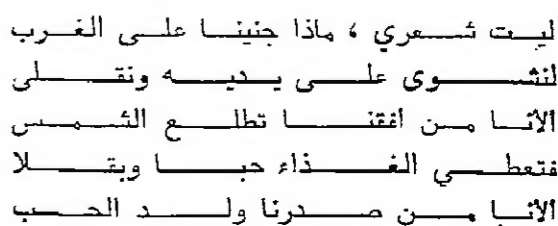 ليت شعري ، ماذا جنينا على الغرب
لنشوى على يديه ونقلى
الأنا من أفقنا تطلع الشمس
فتعطي الغذاء حبا وبقلا
الأنا من صدرنا ولد الحب